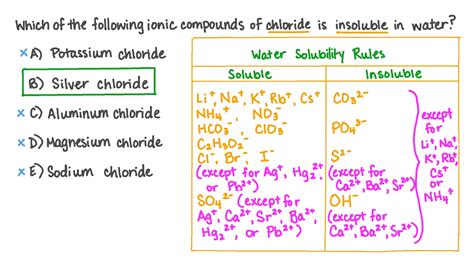 Which of the following ionic compounds of chloride is insoluble in water?
× A) Potassium chloride
B) Silver chloride
× C) Aluminum chloride
× D) Magnesium chloride
× E) Sodium chloride
Water Solubility Rules
Soluble
Li⁺, Na⁺, K⁺, Rb⁺, Cs⁺
NH₄⁺ NO₃⁻
HCO₃⁻ ClO₃⁻
C₂H₃O₂⁻
Cl⁻, Br⁻, I⁻
(except for Ag⁺, Hg₂²⁺,
or Pb²⁺)
SO₄²⁻ (except for
Ag⁺, Ca²⁺, Sr²⁺, Ba²⁺,
Hg₂²⁺, or Pb²⁺)
Insoluble
CO₃²⁻
PO₄³⁻
S²⁻
(except for
Ca²⁺, Ba²⁺, Sr²⁺)
OH⁻
(except for
Ca²⁺, Ba²⁺, Sr²⁺)
except
for
Li⁺, Na⁺,
K⁺, Rb⁺,
Cs⁺
or
NH₄⁺